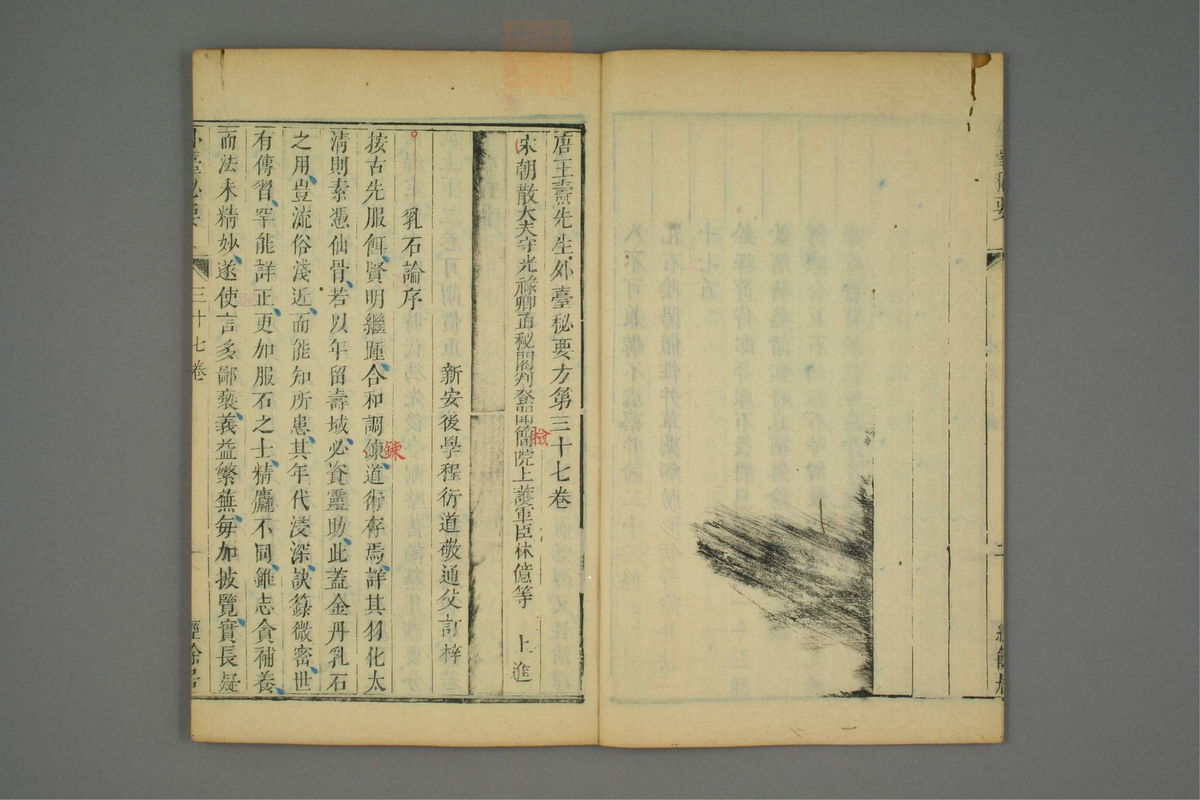 唐王燾先生外臺秘要方第三十七卷
宋朝散大夫守光祿卿直秘閣判登聞簡院上護軍臣林億等 上進
檢
新安後學程衍道敬通父訂梓
乳石論序
按古先服餌賢明繼踵合和調鍊道術存焉詳其羽化太
鍊
清則素憑仙骨若以年留壽域必資靈助此蓋金丹乳石
之用豈流俗淺近而能知所患其年代浸深訣籙微密世
有傳習罕能詳正更加服石之士精麤不同雖志貪補養
而法未精妙遂使言多鄙褻義益繁蕪每加披覽實長疑
外臺秘要
三十七卷
一
經餘居